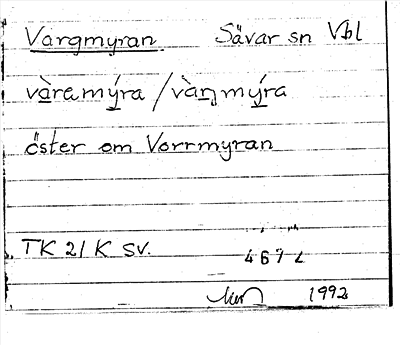 Vargmyran Sävar sn Vbl
vàramýra / vàrŋmýra
öster om Vorrmyran
TK 21 K SV.
1992